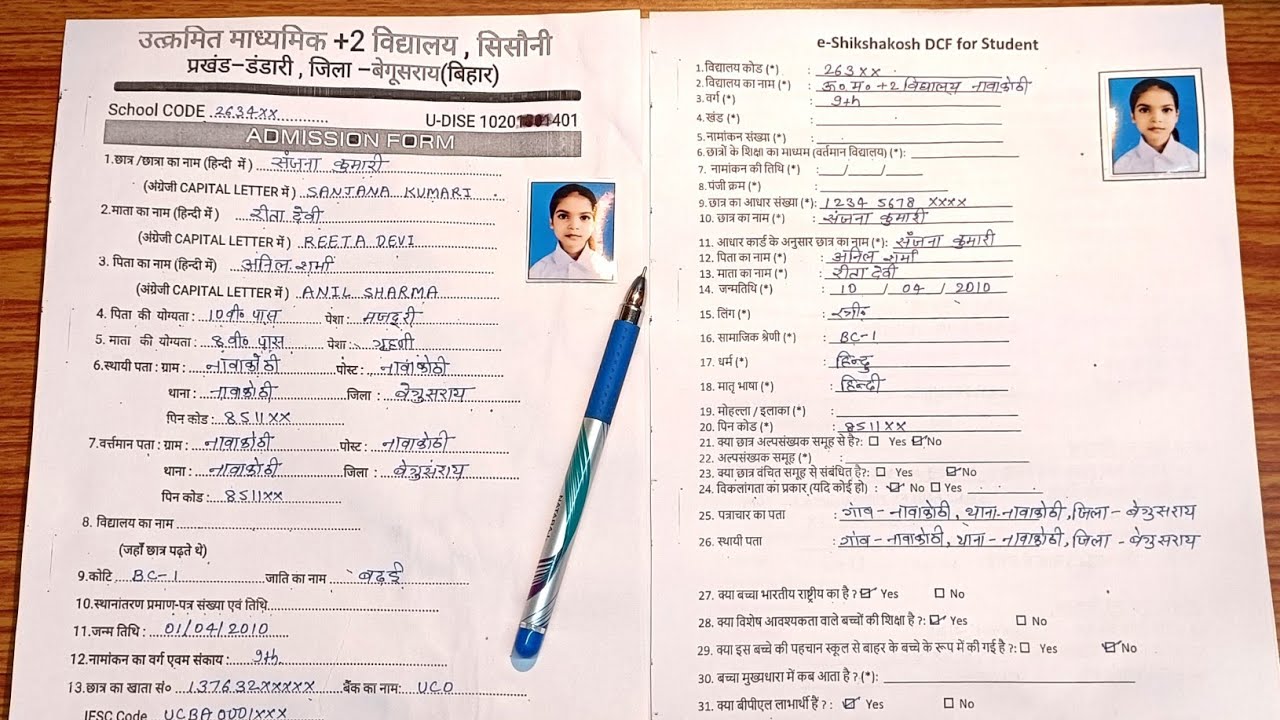 उत्क्रमित माध्यमिक +2 विद्यालय , सिसौनी
प्रखंड–डंडारी , जिला –बेगूसराय(बिहार)
School CODE 2634xx
U-DISE 10201 401
ADMISSION FORM
1.छात्र /छात्रा का नाम (हिन्दी में ) संजना कुमारी
(अंग्रेजी CAPITAL LETTER में ) SANJANA KUMARI
2.माता का नाम (हिन्दी में ) रीता देवी
(अंग्रेजी CAPITAL LETTER में ) REETA DEVI
3. पिता का नाम (हिन्दी में ) अनिल शर्मा
(अंग्रेजी CAPITAL LETTER में ) ANIL SHARMA
4. पिता की योग्यता : 10वी० पास पेशा : मजदूरी
5. माता की योग्यता : 8वी० पास पेशा : गृहणी
6.स्थायी पता : ग्राम : नावाकोठी पोस्ट : नावाकोठी
थाना : नावाकोठी जिला : बेगुसराय
पिन कोड : 8511xx
7.वर्त्तमान पता : ग्राम : नावाकोठी पोस्ट : नावाकोठी
थाना : नावाकोठी जिला : बेगुसराय
पिन कोड : 8511xx
8. विद्यालय का नाम
(जहाँ छात्र पढ़ते थे)
9.कोटि BC-1 जाति का नाम बढ़ई
10.स्थानांतरण प्रमाण-पत्र संख्या एवं तिथि
11.जन्म तिथि : 01/04/2010
12.नामांकन का वर्ग एवम संकाय : 9th
13.छात्र का खाता सं० 137632xxxxx बैंक का नाम: UCO
IFSC Code UCBA0001xxx
e-Shikshakosh DCF for Student
1.विद्यालय कोड (*) : 263xx
2.विद्यालय का नाम (*) : उ० म० +2 विद्यालय नावाकोठी
3.वर्ग (*) : 9th
4.खंड (*) :
5.नामांकन संख्या (*) :
6.छात्रों के शिक्षा का माध्यम (वर्तमान विद्यालय) (*):
7. नामांकन की तिथि (*) : / /
8. पंजी क्रम (*) :
9.छात्र का आधार संख्या (*): 1234 5678 XXXX
10. छात्र का नाम (*) : संजना कुमारी
11. आधार कार्ड के अनुसार छात्र का नाम (*): संजना कुमारी
12. पिता का नाम (*) : अनिल शर्मा
13. माता का नाम (*) : रीता देवी
14. जन्मतिथि (*) : 10 / 04 / 2010
15. लिंग (*) : स्त्री०
16. सामाजिक श्रेणी (*) : BC-1
17. धर्म (*) : हिन्दु
18. मातृ भाषा (*) : हिन्दी
19. मोहल्ला / इलाका (*) :
20. पिन कोड (*) : 8511xx
21. क्या छात्र अल्पसंख्यक समूह से है?: Yes No
22. अल्पसंख्यक समूह (*) :
23. क्या छात्र वंचित समूह से संबंधित है?: Yes No
24. विकलांगता का प्रकार (यदि कोई हो) : No Yes
25. पत्राचार का पता : गांव - नावाकोठी, थाना-नावाकोठी, जिला - बेगुसराय
26. स्थायी पता : गांव - नावाकोठी, थाना - नावाकोठी, जिला - बेगुसराय
27. क्या बच्चा भारतीय राष्ट्रीय का है ? Yes No
28. क्या विशेष आवश्यकता वाले बच्चों की शिक्षा है ?: Yes No
29. क्या इस बच्चे की पहचान स्कूल से बाहर के बच्चे के रूप में की गई है ?: Yes No
30. बच्चा मुख्यधारा में कब आता है ? (*):
31. क्या बीपीएल लाभार्थी हैं ? : Yes No